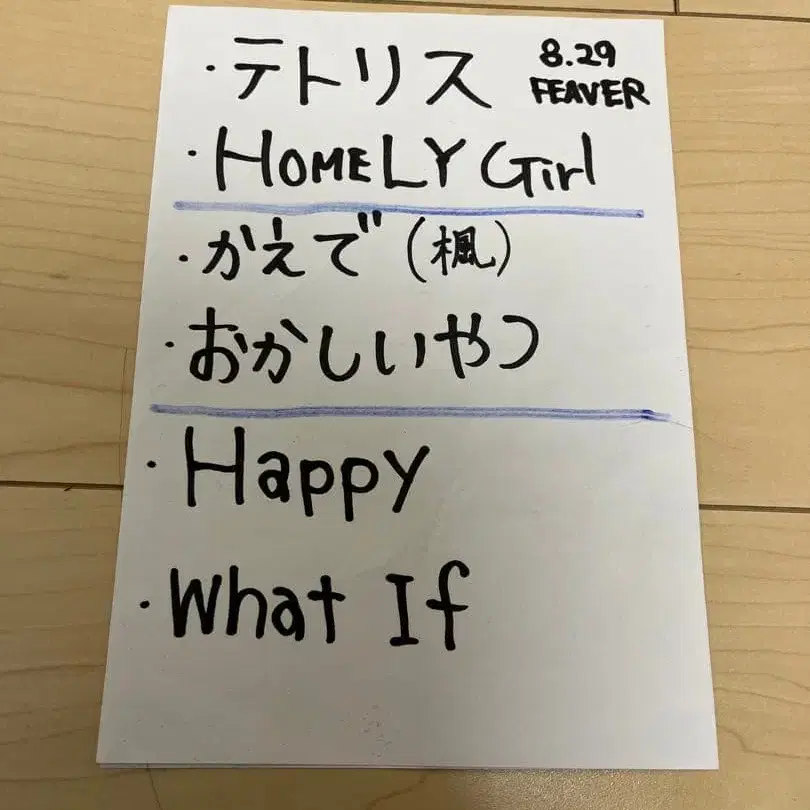 ・テトリス
8.29
FEAVER
・HOMELY Girl
・かえで(楓)
・おかしいやつ
・Happy
・What If